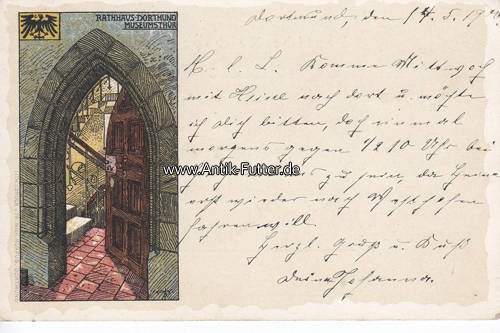 RATHHAUS-DORTMUND
MUSEUMSTHÜR
Dortmund, den 14.5.19
H. l. L. Komme Mittwoch
mit Heine nach dort u. möchte
ich Dich bitten, doch einmal
morgens gegen 1/2 10 Uhr bei
www.Antik-Futter.de
zu sein, da Heine
erst wieder nach Westhofen
fahren will.
Herzl. Gruß u. Kuß
Deine Johanna.